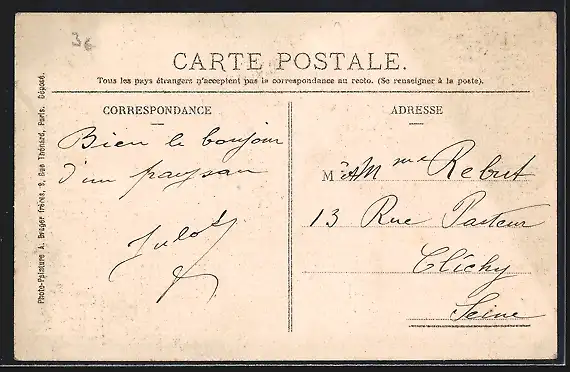 36
CARTE POSTALE.
Tous les pays étrangers n'acceptent pas la correspondance au recto. (Se renseigner à la poste).
CORRESPONDANCE
Bien le bonjour
d'un paysan
Julot
ADRESSE
M à Mme Rebut
13 Rue Pasteur
Clichy
Seine
Photo-Peinture A. Breger frères, 9, Rue Thénard, Paris. Déposé.